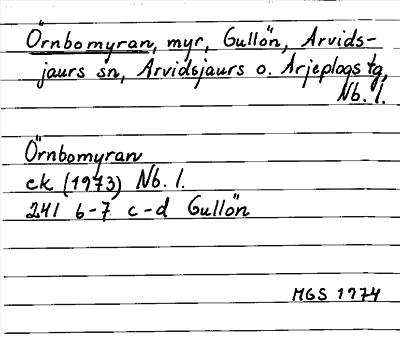 Örnbomyran, myr, Gullön, Arvids-
jaurs sn, Arvidsjaurs o. Arjeplogs tg,
Nb. l.
Örnbomyran
ek (1973) Nb. l.
241 6-7 c-d Gullön
MGS 1974